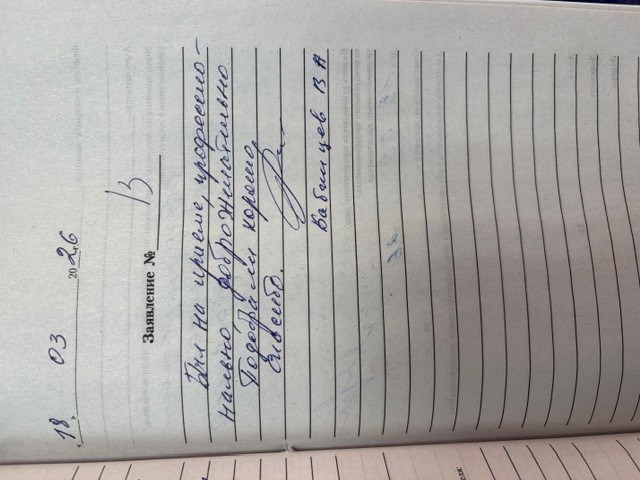 18. 03 2026
Заявление № 13
Был на приеме, профессио-
нально доброжелательно
Подобрали хорошо,
Спасибо.
Бабинцев В А